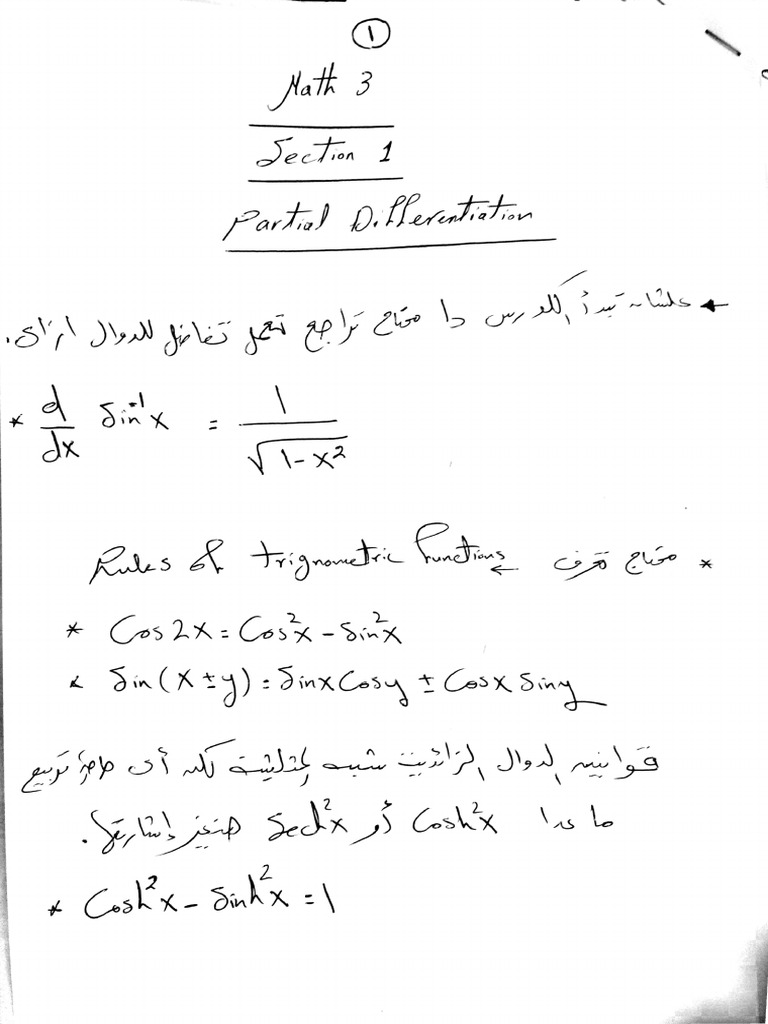 1
Math 3
Section 1
Partial Differentiation
← علشان تبدأ الكورس دا محتاج تراجع تعمل تفاضل للدوال ازاى.
* d/dx Sin⁻¹x = 1/√(1-x²)
* محتاج تعرف ← Rules of trignometric Functions
* Cos2x = Cos²x - Sin²x
* Sin(x ± y) = Sinx Cosy ± Cosx Siny
قوانين الدوال الزائدية شبه المثلثية لكن أى حاجة تربيع
ما عدا Cosh²x أو Sech²x هنغير إشارتها.
* Cosh²x - Sinh²x = 1